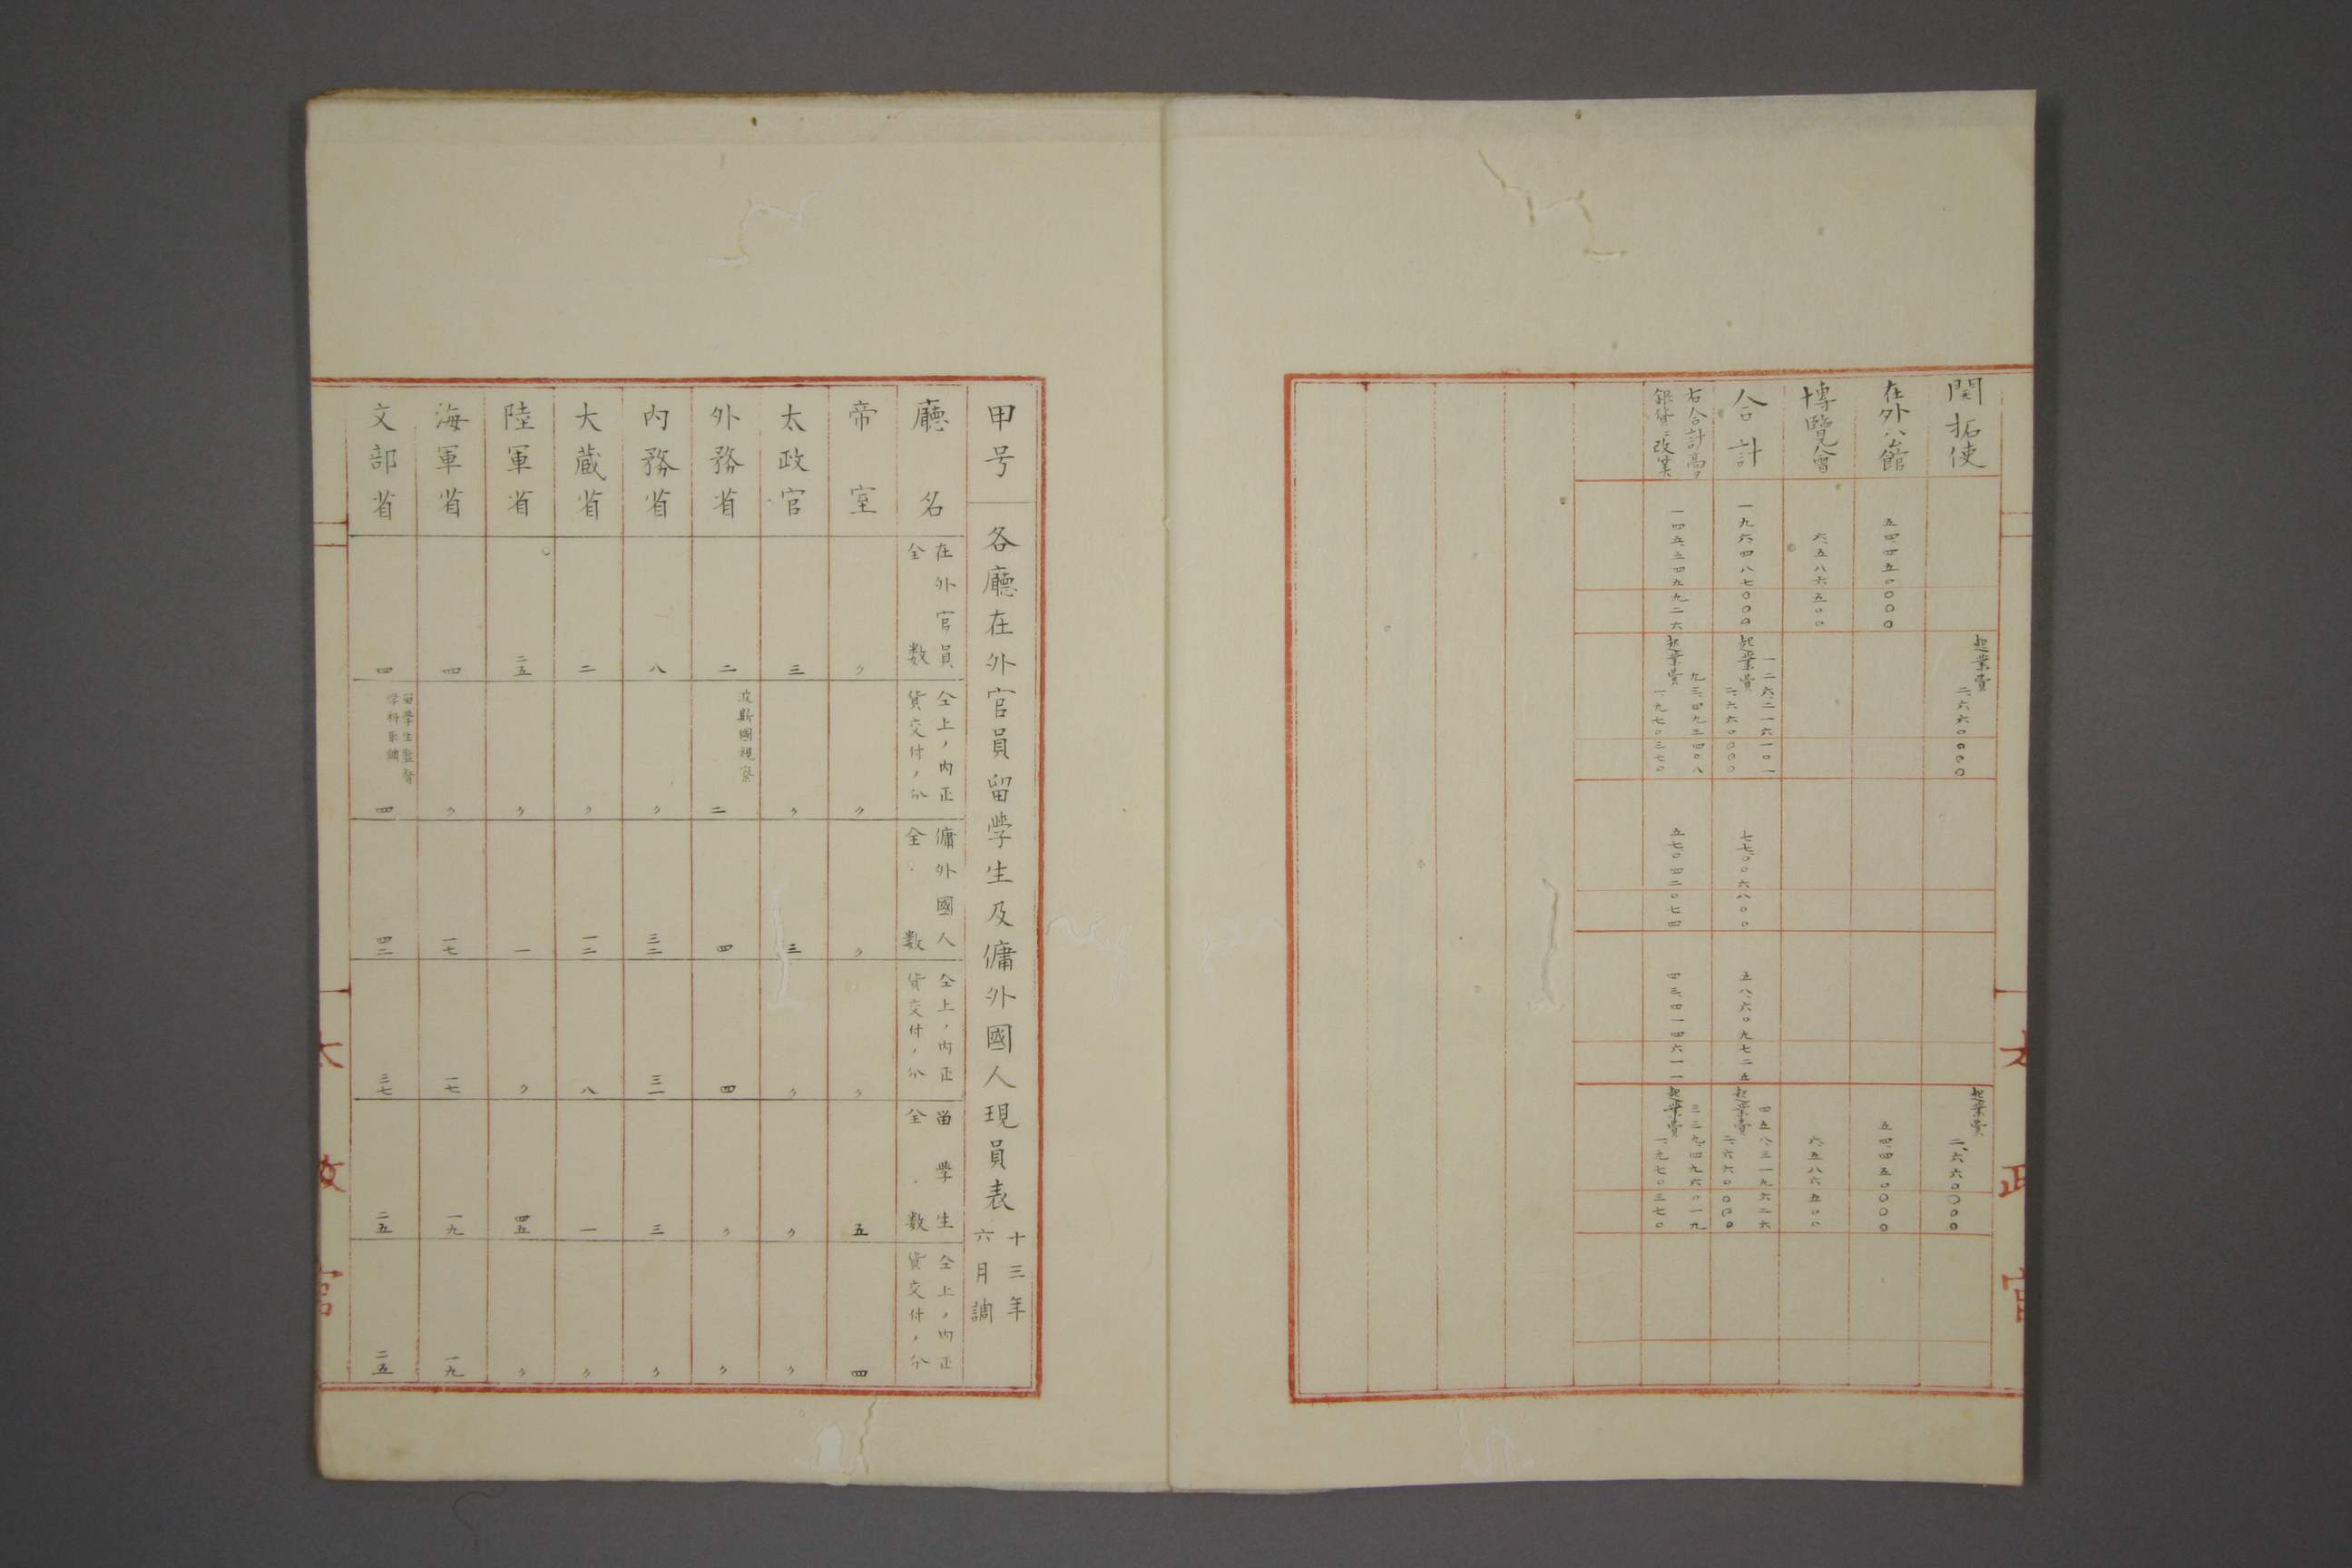 開拓使
起業費 二、六六〇〇〇〇
起業費 二、六六〇〇〇〇
在外公館
五四、四五〇〇〇〇
五四、四五〇〇〇〇
博覧會
六、五八六五〇〇
六、五八六五〇〇
合計
一九六、四八七〇〇〇
一二六、二一六一〇一
起業費 二、六六〇〇〇〇
七七、〇〇六八〇〇
五八、六〇九七二五
四五八、三一九六二六
起業費 二、六六〇〇〇〇
右合計高ヲ
銀貨ニ改算
一四五、五四五九二六
九三、四九三四〇八
起業費 一、九七〇三七〇
五七、〇四二〇七四
四三、四一四六一一
三三九、四九六〇一九
起業費 一、九七〇三七〇
太政官
甲号 各廳在外官員留學生及傭外國人現員表 十三年
六月調
廳名
在外官員
仝数
仝上ノ内正
貨交付ノ分
傭外國人
仝数
仝上ノ内正
貨交付ノ分
留學生
仝数
仝上ノ内正
貨交付ノ分
帝室 〃 〃 〃 〃 五 四
太政官 三 〃 三 〃 〃 〃
外務省 二 波斯國視察 二 四 四 〃 〃
内務省 八 〃 三二 三一 三 〃
大蔵省 二 〃 一二 八 一 〃
陸軍省 二五 〃 一 〃 四五 〃
海軍省 四 〃 一七 一七 一九 一九
文部省 四 留學生監督
学科取調 四 四二 三七 二五 二五
太政官